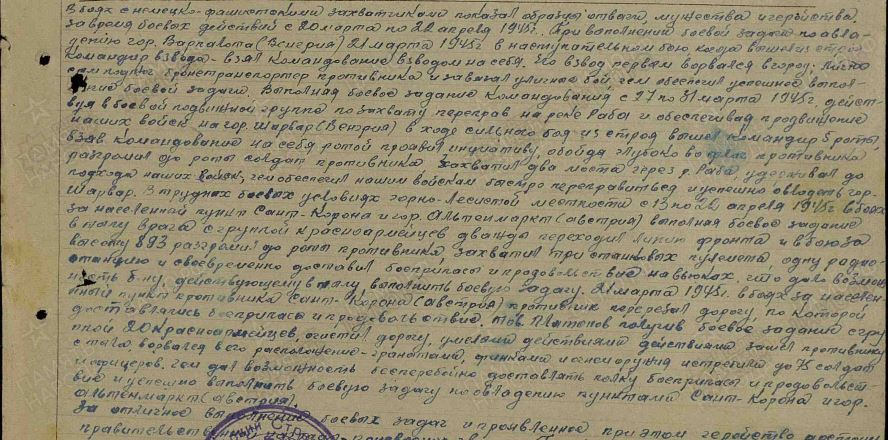 В боях с немецко-фашистскими захватчиками показал образцы отваги, мужества и геройства.
за время боевых действий с 20 марта по 22 апреля 1945г. При выполнении боевой задачи по овла-
дению гор. Варпалота (Венгрия) 21 марта 1945г в наступательном бою, когда вышел из строя
командир взвода - взял командование взводом на себя. Его взвод первым ворвался в город. Лично
сам подбил бронетранспортер противника и завязал уличный бой, чем обеспечил успешное выпол-
нение боевой задачи. Выполняя боевое задание командования с 27 по 31 марта 1945г. дейст-
вуя в боевой подвижной группе по захвату переправ на реке Раба и обеспечивая продвижение
наших войск на гор. Шарвар (Венгрия) в ходе сильного боя из строя вышел командир 5 роты,
взяв командование на себя ротой проявил инициативу, обойдя глубоко во фланг противника
разгромил до роты солдат противника захватил два моста через р. Раба, удерживал до
подхода наших войск, чем обеспечил нашим войскам быстро переправиться и успешно овладеть гор.
Шарвар. В трудных боевых условиях горно-лесистой местности с 13 по 22 апреля 1945г в боях
за населенный пункт Сант-Корона и гор. Альтенмаркт (Австрия) выполняя боевое задание
в тылу врага с группой красноармейцев дважды переходил линию фронта и в бою за
высоту 893 разгромил до роты противника, захватил три станковых пулемета, одну радио-
станцию и своевременно доставил боеприпасы и продовольствие на вьюках, что дало возмож-
ность б-ну, действующему в тылу, выполнить боевую задачу. 21 марта 1945г. в боях за населен-
ный пункт противника Санкт-Корона (Австрия) противник перерезал дорогу, по которой
доставлялись боеприпасы и продовольствие. Тов. Платонов получив боевое задание с груп-
пой 20 красноармейцев, очистил дорогу, умелыми действиями действиями зашел противнику
с тыла ворвался в его расположение - гранатами, финками и огнем оружия истребил до 75 солдат
и офицеров. Чем дал возможность бесперебойно доставлять полку боеприпасы и продовольст-
вие и успешно выполнить боевую задачу по овладению пунктами Санкт-Корона и гор.
Альтенмаркт (Австрия).
За отличное выполнение боевых задач и проявленное при этом геройство достоин
правительственной награды